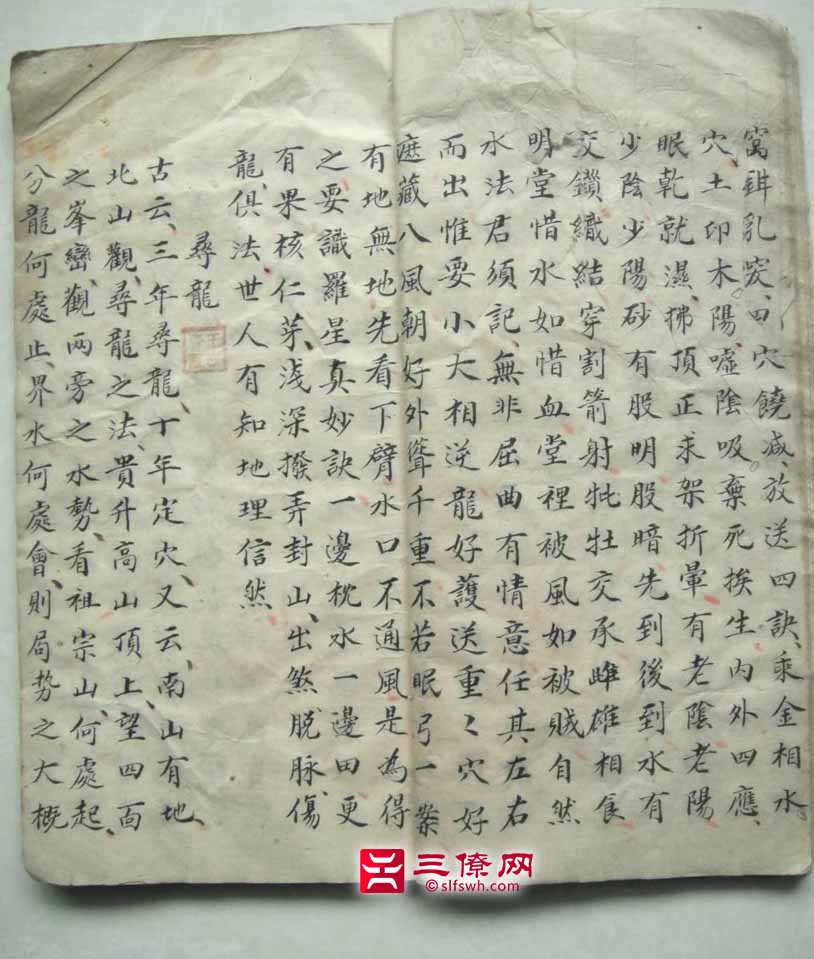 窩鉗乳突、四穴饒减、放送四訣、乘金相水
穴、土印木陽、噓陰吸棄死挨生内外四應、
眠乾就濕、狒頂正求架折暈有老陰老陽
少陰少陽砂有股明股暗先到後到水有
交鎖織結穿割箭射牝牡交承雌雄相食
明堂惜水如惜血堂裡被風如被賊自然
水法君須記、無非屈曲有情意任其左右
而出惟要小大相逆龍好護送重〻穴好
遮藏八風朝好外聳千重不若眠弓一案
有地無地先看下臂水口不通風是為得
之要識羅星真妙訣一邊枕水一邊田更
有果核仁芽浅深撥弄封山、出煞、脱脉、傷
龍、俱法世人有知地理信然
尋龍
古云、三年尋龍、十年定穴、又云、南山有地、
北山觀、尋龍之法、貴升高山頂上、望四面
之峯巒、觀兩旁之水勢、看祖宗山、何處起、
分龍何處止、界水何處會、則局势之大概
三僚网
©slfswh.com